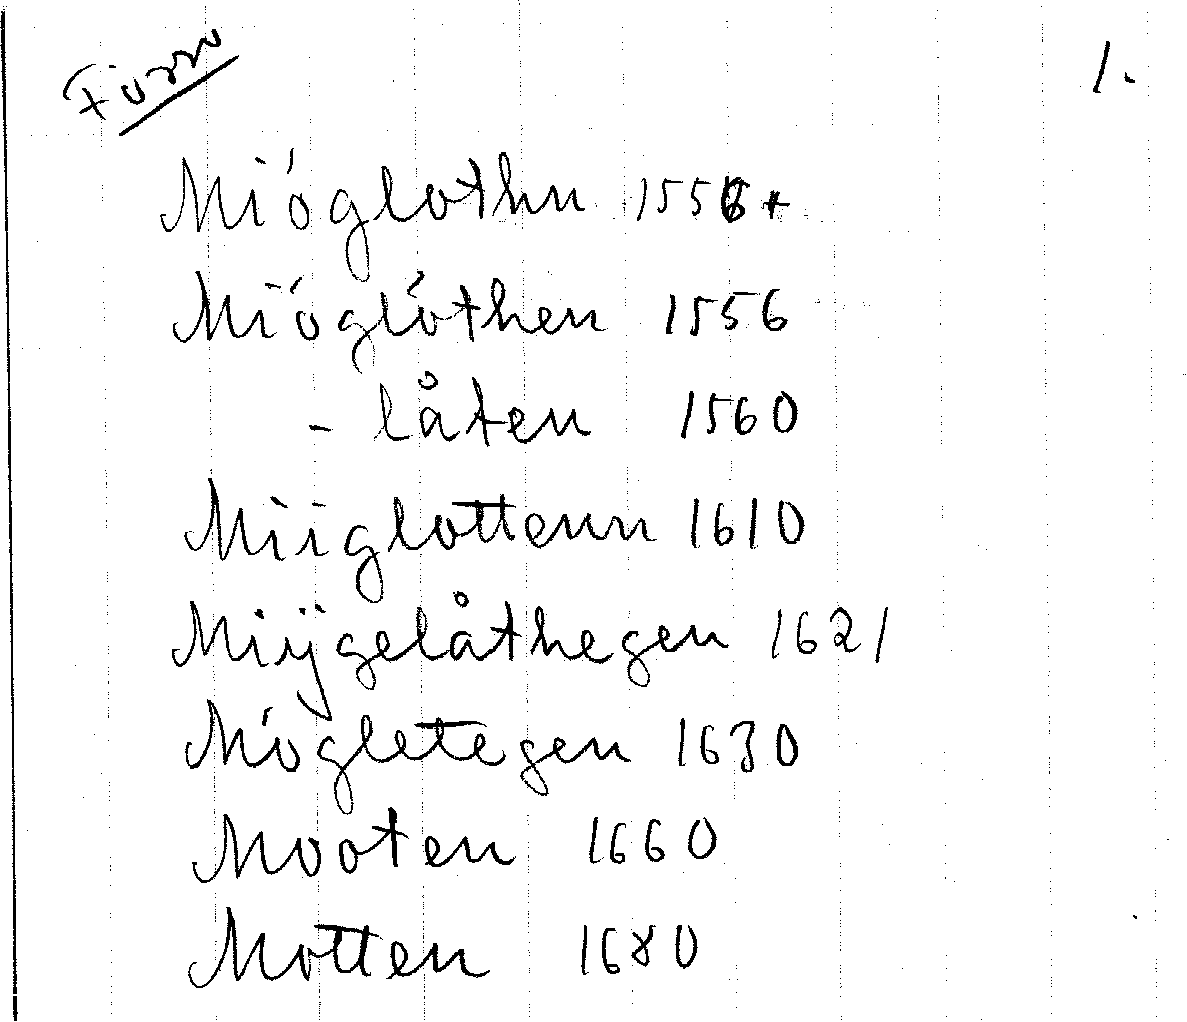 1.
Mióglothn 1556+
Mióglóthen 1556
- låten 1560
Miiglottenn 1610
Miÿgelåthegen 1621
Mógletegen 1630
Mooten 1660
Motten 1680